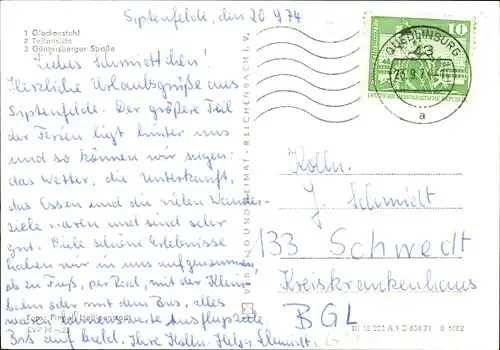 Siptenfelde, den 20 9.74
1 Glockenstuhl
2 Teilansicht
3 Güntersberger Straße
Liebes Schmiettchen!
Herzliche Urlaubsgrüße aus
Siptenfelde. Der größere Teil
der Ferien liegt hinter uns
und so können wir sagen:
das Wetter, die Unterkunft,
das Essen und die vielen Wander-
ziele waren und sind sehr
gut. Viele schöne Erlebnisse
haben wir in uns aufgenommen,
ob zu Fuß, per Rad, mit der Klein-
bahn oder mit dem Bus, alles
waren Ausflugsziele.
Bis auf bald. Ihre Kolln. Helga Schmidt
Foto:
EVP M
VERBIND UND HEIMAT REICHENBACH I. V.
10
DEUTSCHE DEMOKRATISCHE REPUBLIK
QUEDLINBURG
43
a
Kolln.
J. Schmidt
133 Schwedt
Kreiskrankenhaus
BGL